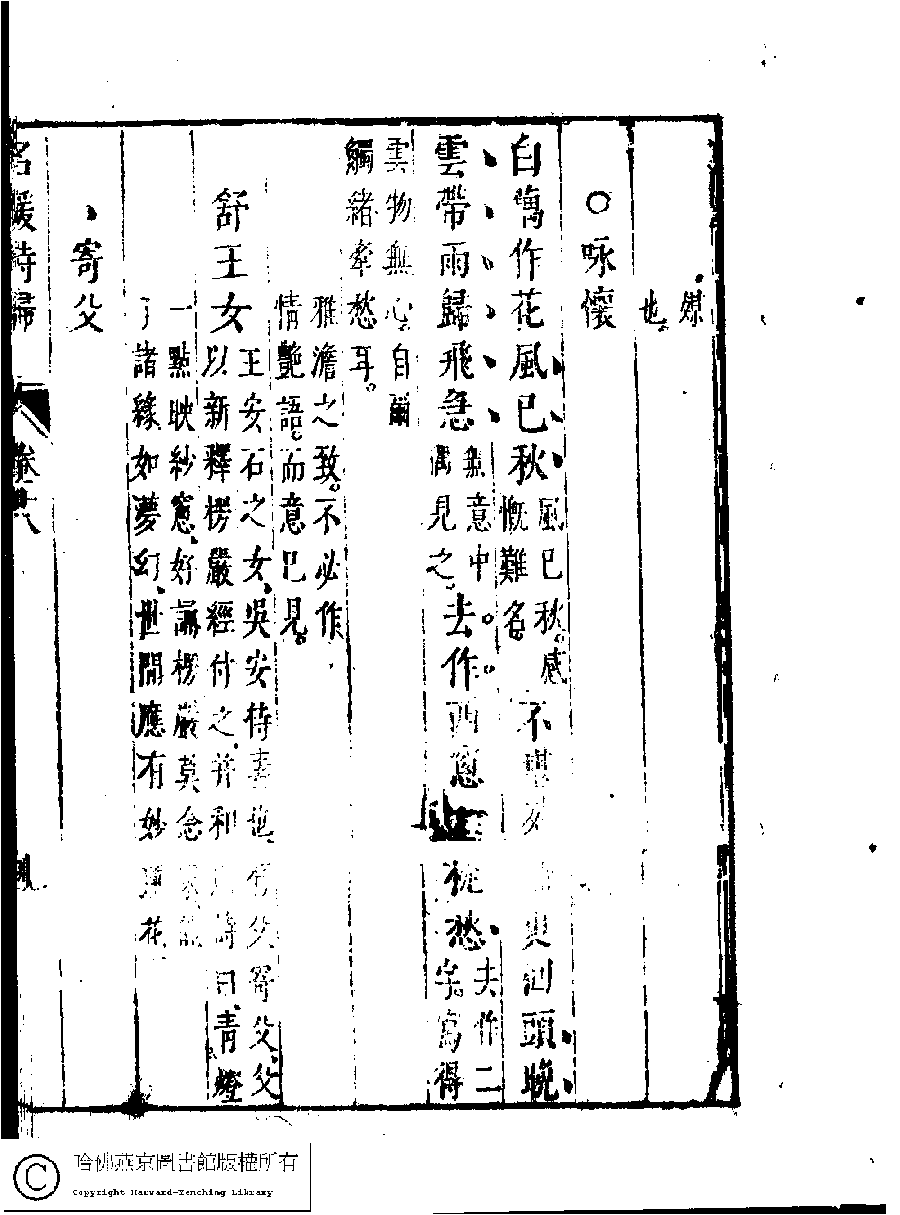 媒
也
○咏懷
白蘋作花風已秋風已秋。感
慨難名。不堪 更回頭晚
雲帶雨歸飛急無意中
偶見之。去作西窻 枕愁去作二
字。寫得
雲物無心。自爾
觸緒牽愁耳。
雅澹之致。不必作
情艷語。而意已見。
舒王女王安石之女、吳安持妻也、 父寄父、父
以新釋楞嚴經付之、并和 詩曰、青燈
一點映紗窻、好讀楞嚴莫念
了諸緣如夢幻、世間應有妙蓮花
寄父
名媛詩歸
卷十八
哈佛燕京圖書館版權所有
Copyright Harvard-Yenching Library